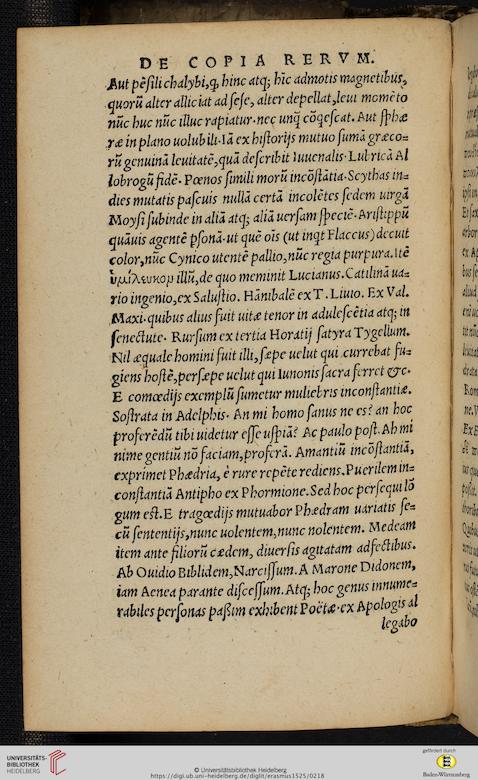 DE COPIA RERVM.
Aut pẽſili chalybi, q, hinc atq; hĩc admotis magnetibus,
quorũ alter alliciat ad ſeſe, alter depellat, leui momẽto
nũc huc nũc illuc rapiatur· nec unq̃ cõqeſcat. Aut ſphæ
ræ in plano uolubili· Iã ex hiſtorijs mutuo ſumã græco-
rũ genuinã leuitatẽ, quã deſcribit Iuuenalis· Lubricã Al
lobrogũ fidẽ· Pœnos ſimili morũ incõſtãtia· Scythas in=
dies mutatis paſcuis nullã certã incolẽtes ſedem uirgã
Moyſi ſubinde in aliã atq; aliã uerſam ſpeciẽ· Ariſtippũ
quãuis agentẽ pſonã· ut quẽ oĩs (ut inqt Flaccus) decuit
color, nũc Cynico utentẽ pallio, nũc regia purpura. Itẽ
ὑμίλευκον illũ, de quo meminit Lucianus. Catilinã ua-
rio ingenio, ex Saluſtio. Hãnibalẽ ex T. Liuio. Ex Val.
Maxi· quibus alius fuit uitæ tenor in aduleſcẽtia atq; in
ſenectute· Rurſum ex tertia Horatij ſatyra Tygellum.
Nil æquale homini fuit illi, ſæpe uelut qui currebat fu-
giens hoſtẽ, perſæpe uelut qui Iunonis ſacra ferret &c·
E comœdijs exemplũ ſumetur muliebris inconſtantiæ.
Soſtrata in Adelphis· An mi homo ſanus ne es? an hoc
proferẽdũ tibi uidetur eſſe uſpiã? Ac paulo poſt. Ah mi
nime gentiũ nõ faciam, proferã. Amantiũ incõſtantiã,
exprimet Phædria, è rure repẽte rediens. Puerilem in=
conſtantiã Antipho ex Phormione. Sed hoc perſequi lõ
gum eſt. E tragœdijs mutuabor Phædram uariatis ſe=
cũ ſententijs, nunc uolentem, nunc nolentem. Medeam
item ante filiorũ cædem, diuerſis agitatam adfectibus.
Ab Ouidio Biblidem, Narciſſum. A Marone Didonem,
iam Aenea parante diſceſſum. Atq; hoc genus innume=
rabiles perſonas paßim exhibent Poëtæ· ex Apologis al
legabo
UNIVERSITÄTS-
BIBLIOTHEK
HEIDELBERG
© Universitätsbibliothek Heidelberg
https://digi.ub.uni-heidelberg.de/diglit/erasmus1525/0218
gefördert durch
Baden-Württemberg